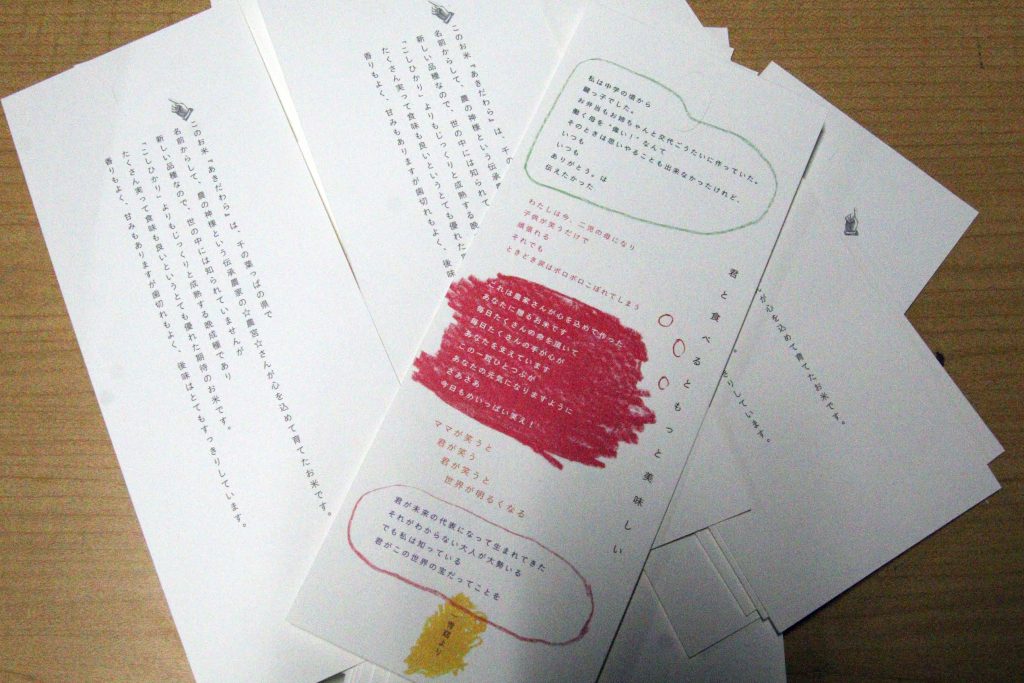 このお米『あきだわら』は、千の葉っぱの県で
名前からして、農の神様という伝承農家の☆農宮☆さんが心を込めて育てたお米です。
新しい品種なので、世の中には知られていませんが
『こしひかり』よりもじっくりと成熟する晩成種であり
たくさん実って食味も良いというとても優れた期待のお米です。
香りもよく、甘みもありますが歯切れもよく、後味はとてもすっきりしています。
このお米『あきだわら』は、千の
名前からして、農の神様という伝承農
新しい品種なので、世の中には知られて
『こしひかり』よりもじっくりと成熟する晩
たくさん実って食味も良いというとても優れた
香りもよく、甘みもありますが歯切れもよく、後味
君と食べるともっと美味しい
私は中学の頃から
鍵っ子でした。
お弁当もお姉ちゃんと交代ごうたいに作っていた。
働く母を“偉い！”なんて
そのときは思いやることも出来なかったけれど、
いつも
いつも
ありがとう。は
伝えたかった
わたしは今、二児の母になり
子供が笑うだけで
頑張れる
それでも
ときどき涙はポロポロこぼれてしまう
これは農家さんが心を込めて作った
あなたに贈るお米です
毎日たくさんの命を頂いて
毎日たくさんの手が心が
あなたを支えています
この一粒ひとつぶが
あなたの元気になりますように
さあさあ
今日もめいっぱい笑え！
ママが笑うと
君が笑う
君が笑うと
世界が明るくなる
君が未来の代表になって生まれてきた
それがわからない大人が大勢いる
でも私は知っている
君がこの世界の宝だってことを
が心を込めて育てたお米です。
きりしています。